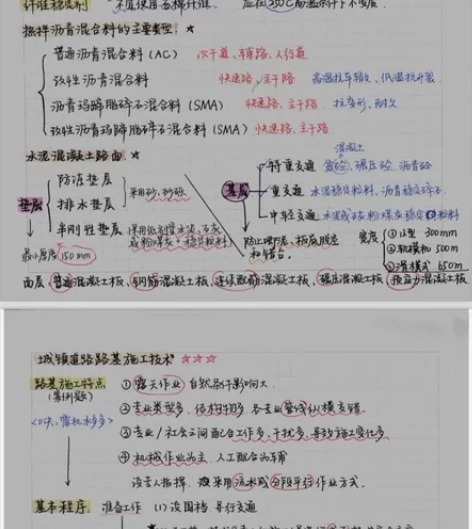 纤维稳定剂 不宜使用石棉纤维 应在250℃高温条件下不变质.
热拌沥青混合料的主要类型: ★
普通沥青混合料(AC) 次干道、辅路、人行道
改性沥青混合料 快速路、主干路 高温抗车辙、低温抗开裂
沥青玛蹄脂碎石混合料(SMA) 快速路、主干路 抗变形、耐久
改性沥青玛蹄脂碎石混合料(SMA) 快速路、主干路
水泥混凝土路面. ★
混凝土
垫层 防冻垫层 排水垫层 采用砂、砂砾
半刚性垫层
最小厚度 150mm
基层 特重交通 贫砼、碾压砼、沥青砼
重交通 水泥稳定粒料、沥青稳定碎石
中轻交通
防止唧泥、板底脱空和错台.
宽度 ①小型 300mm
②轨模机 500m
③滑模式 650m
面层: 普通混凝土板、钢筋混凝土板、连续配筋混凝土板、碾压混凝土板、预应力混凝土板
城镇道路路基施工技术 ★★★
路基施工特点 (案例题)
①露天作业 自然条件影响大.
②专业类型多、结构物多 各专业管线纵横交错.
③专业/社会之间配合工作多、干扰多、导致施工变化多
④机械作业为主、人工配合为辅
设专人指挥. 采用流水或分段平行作业方式.
基本程序. 准备工作 (1) 设围档、导行交通